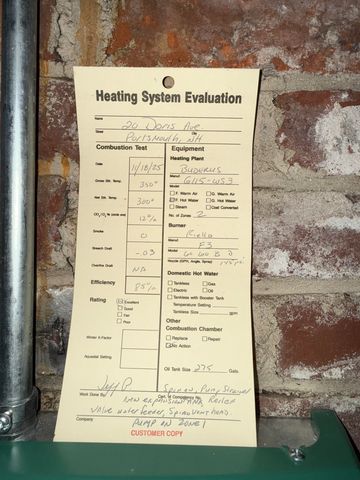 Heating System Evaluation
Name
20 Doris Ave
Street City
Portsmouth, NH
Combustion Test
Equipment
Heating Plant
Date 11/18/25
Buderus
Manuf.
G115-WS3
Gross Stk. Temp. 350°
Model
F. Warm Air G. Warm Air
Net Stk. Temp. 300°
F. Hot Water G. Hot Water
Steam Coal Converted
CO₂/O₂% (circle one) 12%
No. of Zones 2
Burner
Smoke 0
Riello
Manuf.
F3
Breech Draft -.03
Model
Nozzle (GPH, Angle, Spray)
Overfire Draft NA
Domestic Hot Water
Efficiency 85%
Tankless Gas
Electric Oil
Rating Excellent
Tankless with Booster Tank
Good
Temperature Setting
Fair
Tankless Size gpm
Poor
Other
Combustion Chamber
Winter K-Factor
Replace Repair
No Action
Aquastat Setting
Oil Tank Size 275 Gals.
Jeff P
Work Done By
Cert. of Competency No.
New expansion tank Relief
Valve water feeder, Spirovent And
Company
Pump on Zone 1
CUSTOMER COPY